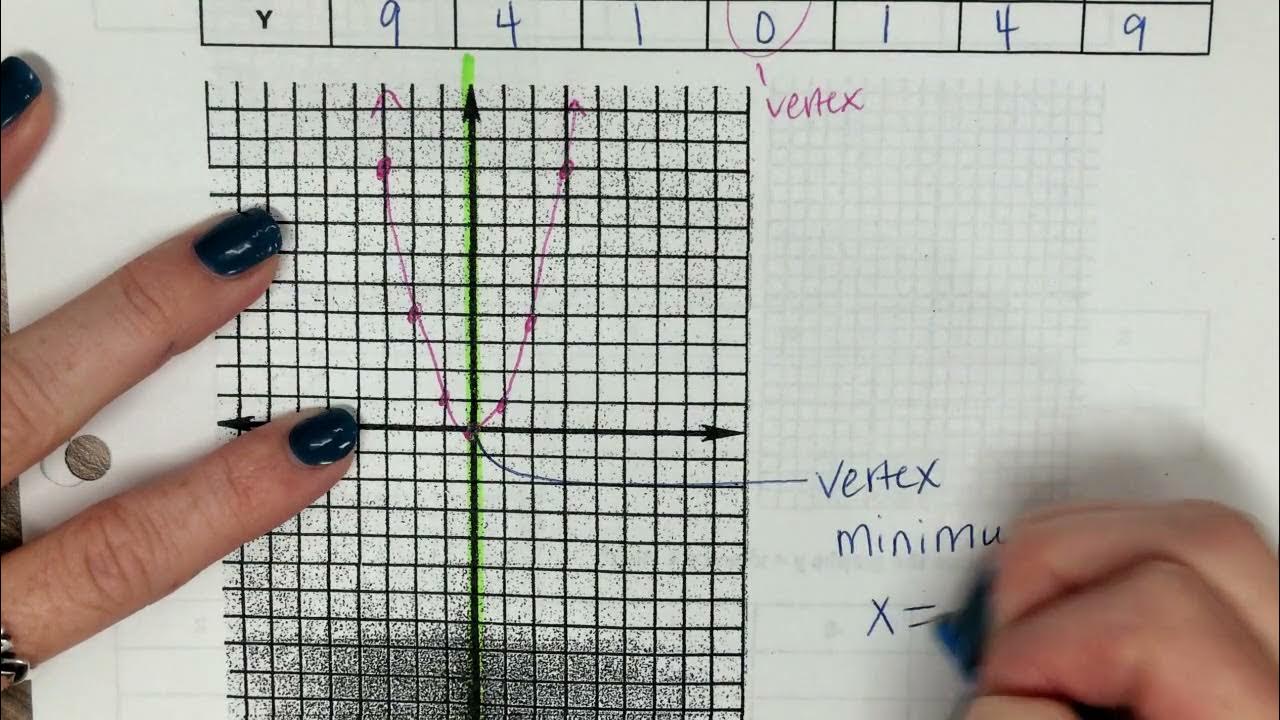 Y 9 4 1 0 1 4 9
vertex
vertex
minimu
x =